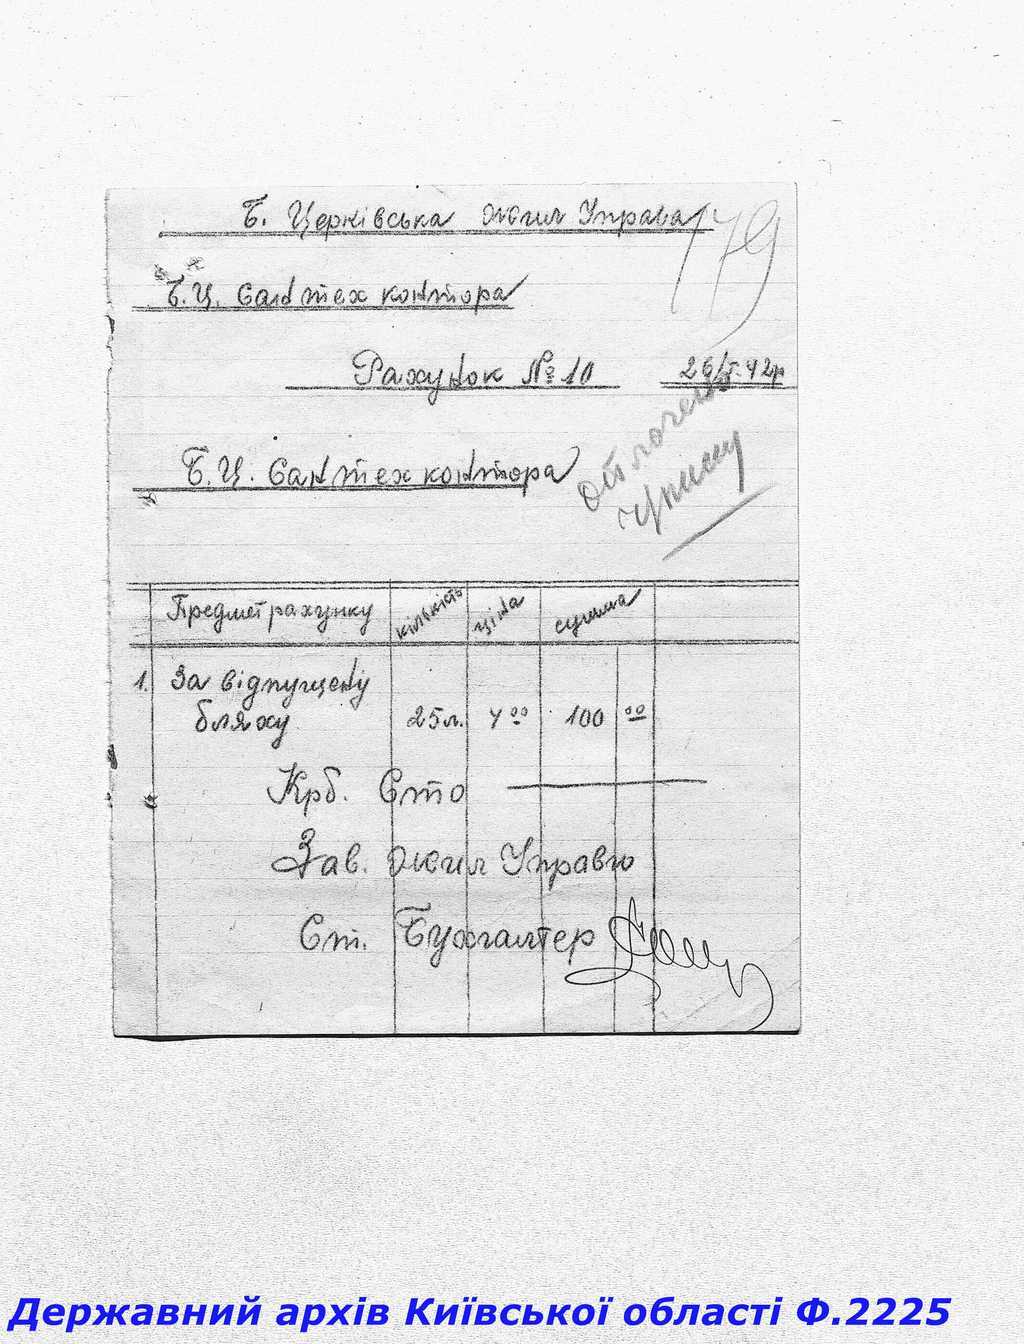 Б. Церківська Жил Управа
179
Б.Ц. Сантех контора
Рахунок № 10 26/V.42р
Б.Ц. Сантех контора
Предмет рахунку кількість ціна сумма
1. За відпущену
бляху 25л. 4 00 100 00
Крб. Сто
Зав. Жил Управю
Ст. Бухгалтер
Державний архів Київської області Ф.2225